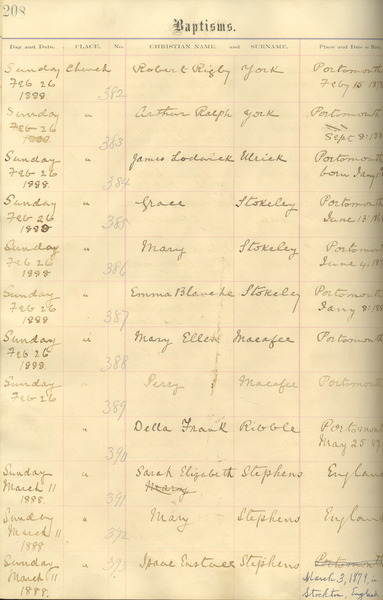 208
Baptisms.
Day and Date. PLACE. No. CHRISTIAN NAME. and SURNAME. Place and Date
Sunday Church Robert Rigby York Portsmouth
Feb 26 Feby 15
1888 382
Sunday " Arthur Ralph York Portsmouth
Feb 26
1888 383 Sept 8
Sunday " James Lodwick Ulrick Portsmouth
Feb 26 born Jany
1888 384
Sunday " Grace Stokeley Portsmouth
Feb 26 June 13
1888 385
Sunday " Mary Stokeley Portsmo
Feb 26 June 4
1888 386
Sunday " Emma Blanche Stokeley Portsmouth
Feb 26 Jany 8
1888 387
Sunday " Mary Ellen Macafee Portsmouth
Feb 26
1888 388
Sunday " Percy Macafee Portsmout
Feb 26
389
" Della Frank Ribble Portsmout
390 May 25
Sunday " Sarah Elizabeth Stephens England
March 11 Mary
1888. 391
Sunday " Mary Stephens England
March 11
1888 392
Sunday " 393 Isaac Stephens Portsmouth
March 11 March 3, 1879, in
1888. Stockton, English